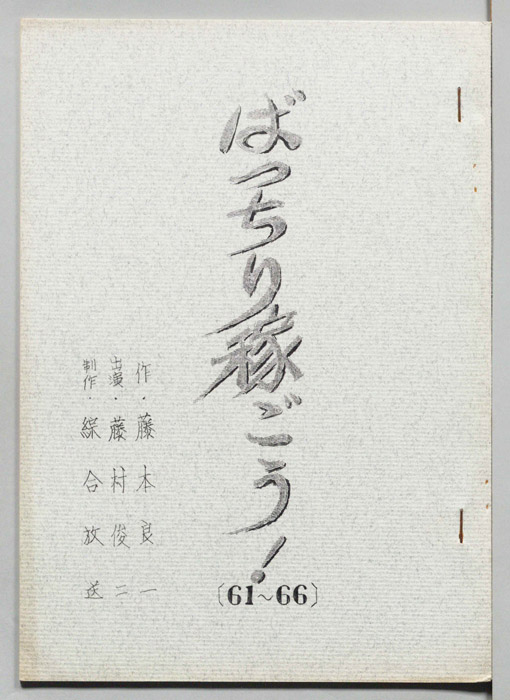 ばっちり稼ごう!
〔61~66〕
作・藤本良一
出演・藤村俊二
制作・綜合放送